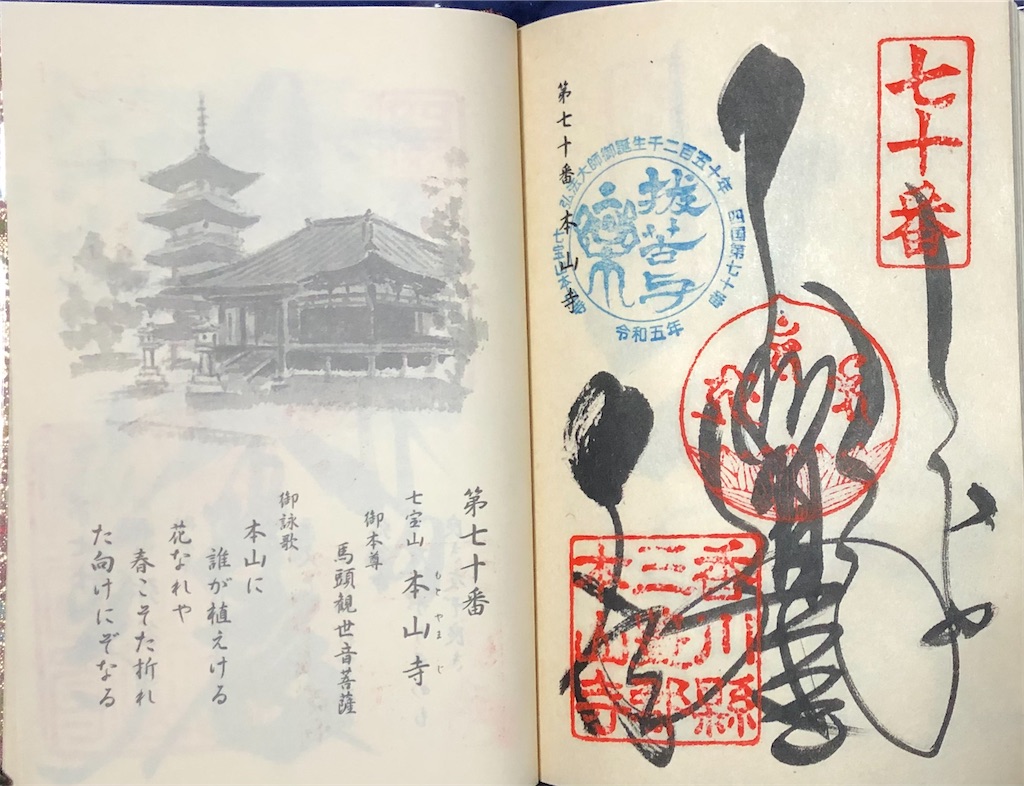 七十番
第七十番 本山寺
弘法大師御誕生千二百五十年
四国第七十番
令和五年
抜苦与
香川縣
三豊郡
本山寺
第七十番
七宝山 本山寺
もとやまじ
御本尊
馬頭観世音菩薩
御詠歌
本山に
誰が植えける
花なれや
春こそた折れ
た向けにぞなる